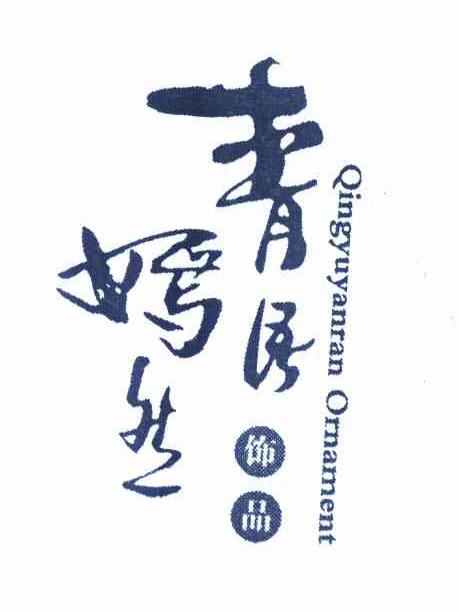 Qingyuyanran Ornament
青语
饰品
嫣然